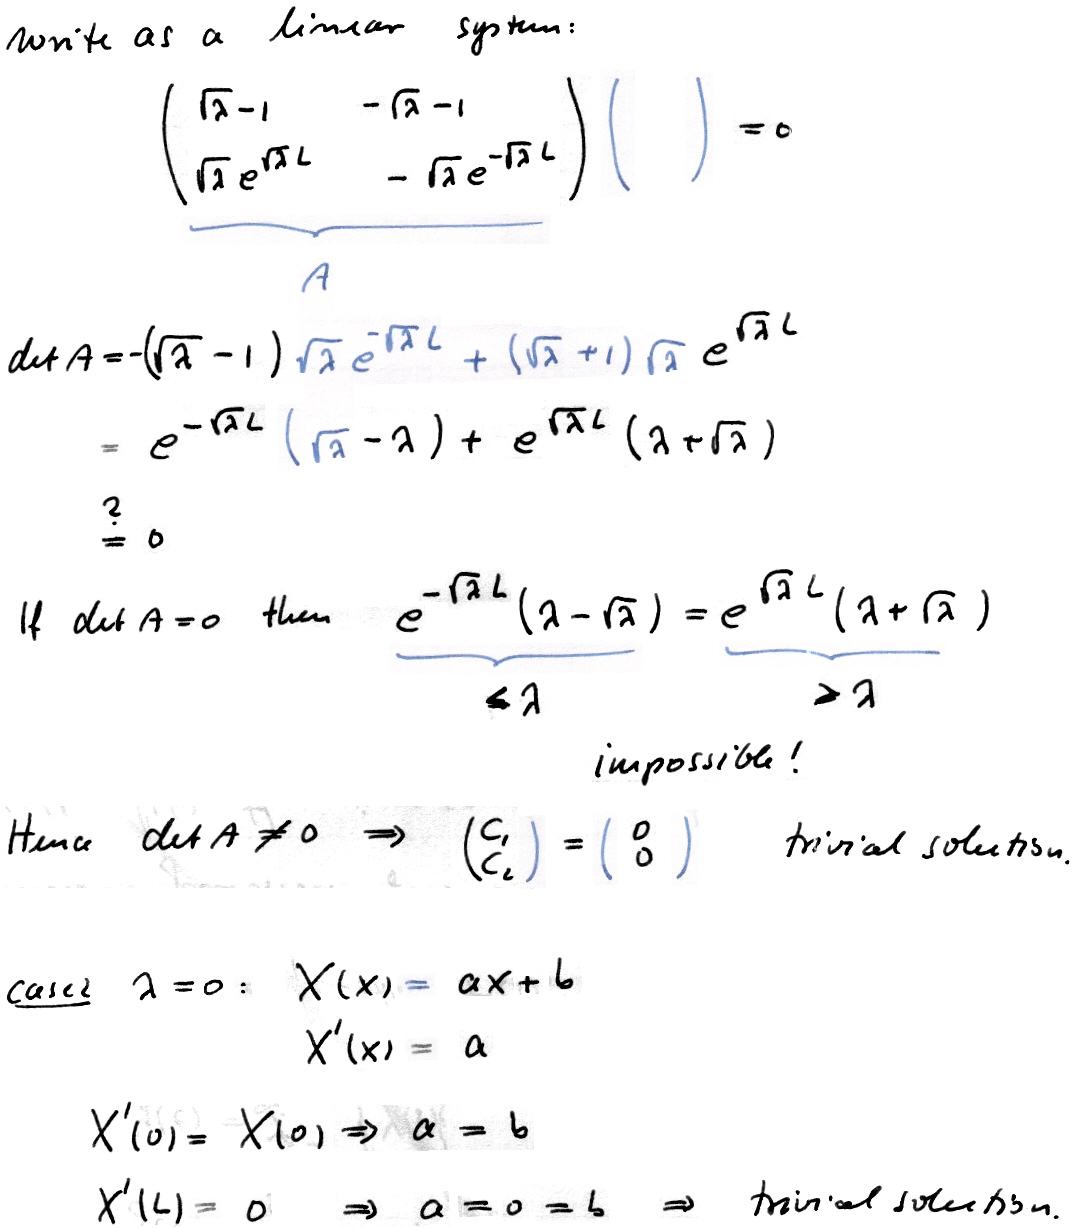 write as a linear system:
( √λ-1   -√λ-1 ; √λ e^{√λ L}   -√λ e^{-√λ L} ) (   ) = 0
A
det A = -(√λ - 1) √λ e^{-√λ L} + (√λ + 1) √λ e^{√λ L}
= e^{-√λ L} (√λ - λ) + e^{√λ L} (λ + √λ)
?
= 0
If det A = 0 then e^{-√λ L} (λ - √λ) = e^{√λ L} (λ + √λ)
≤ λ   > λ
impossible!
Hence det A ≠ 0 ⇒ (C₁ ; C₂) = (0 ; 0) trivial solution.
case2 λ = 0 : X(x) = ax + b
X'(x) = a
X'(0) = X(0) ⇒ a = b
X'(L) = 0 ⇒ a = 0 = b ⇒ trivial solution.